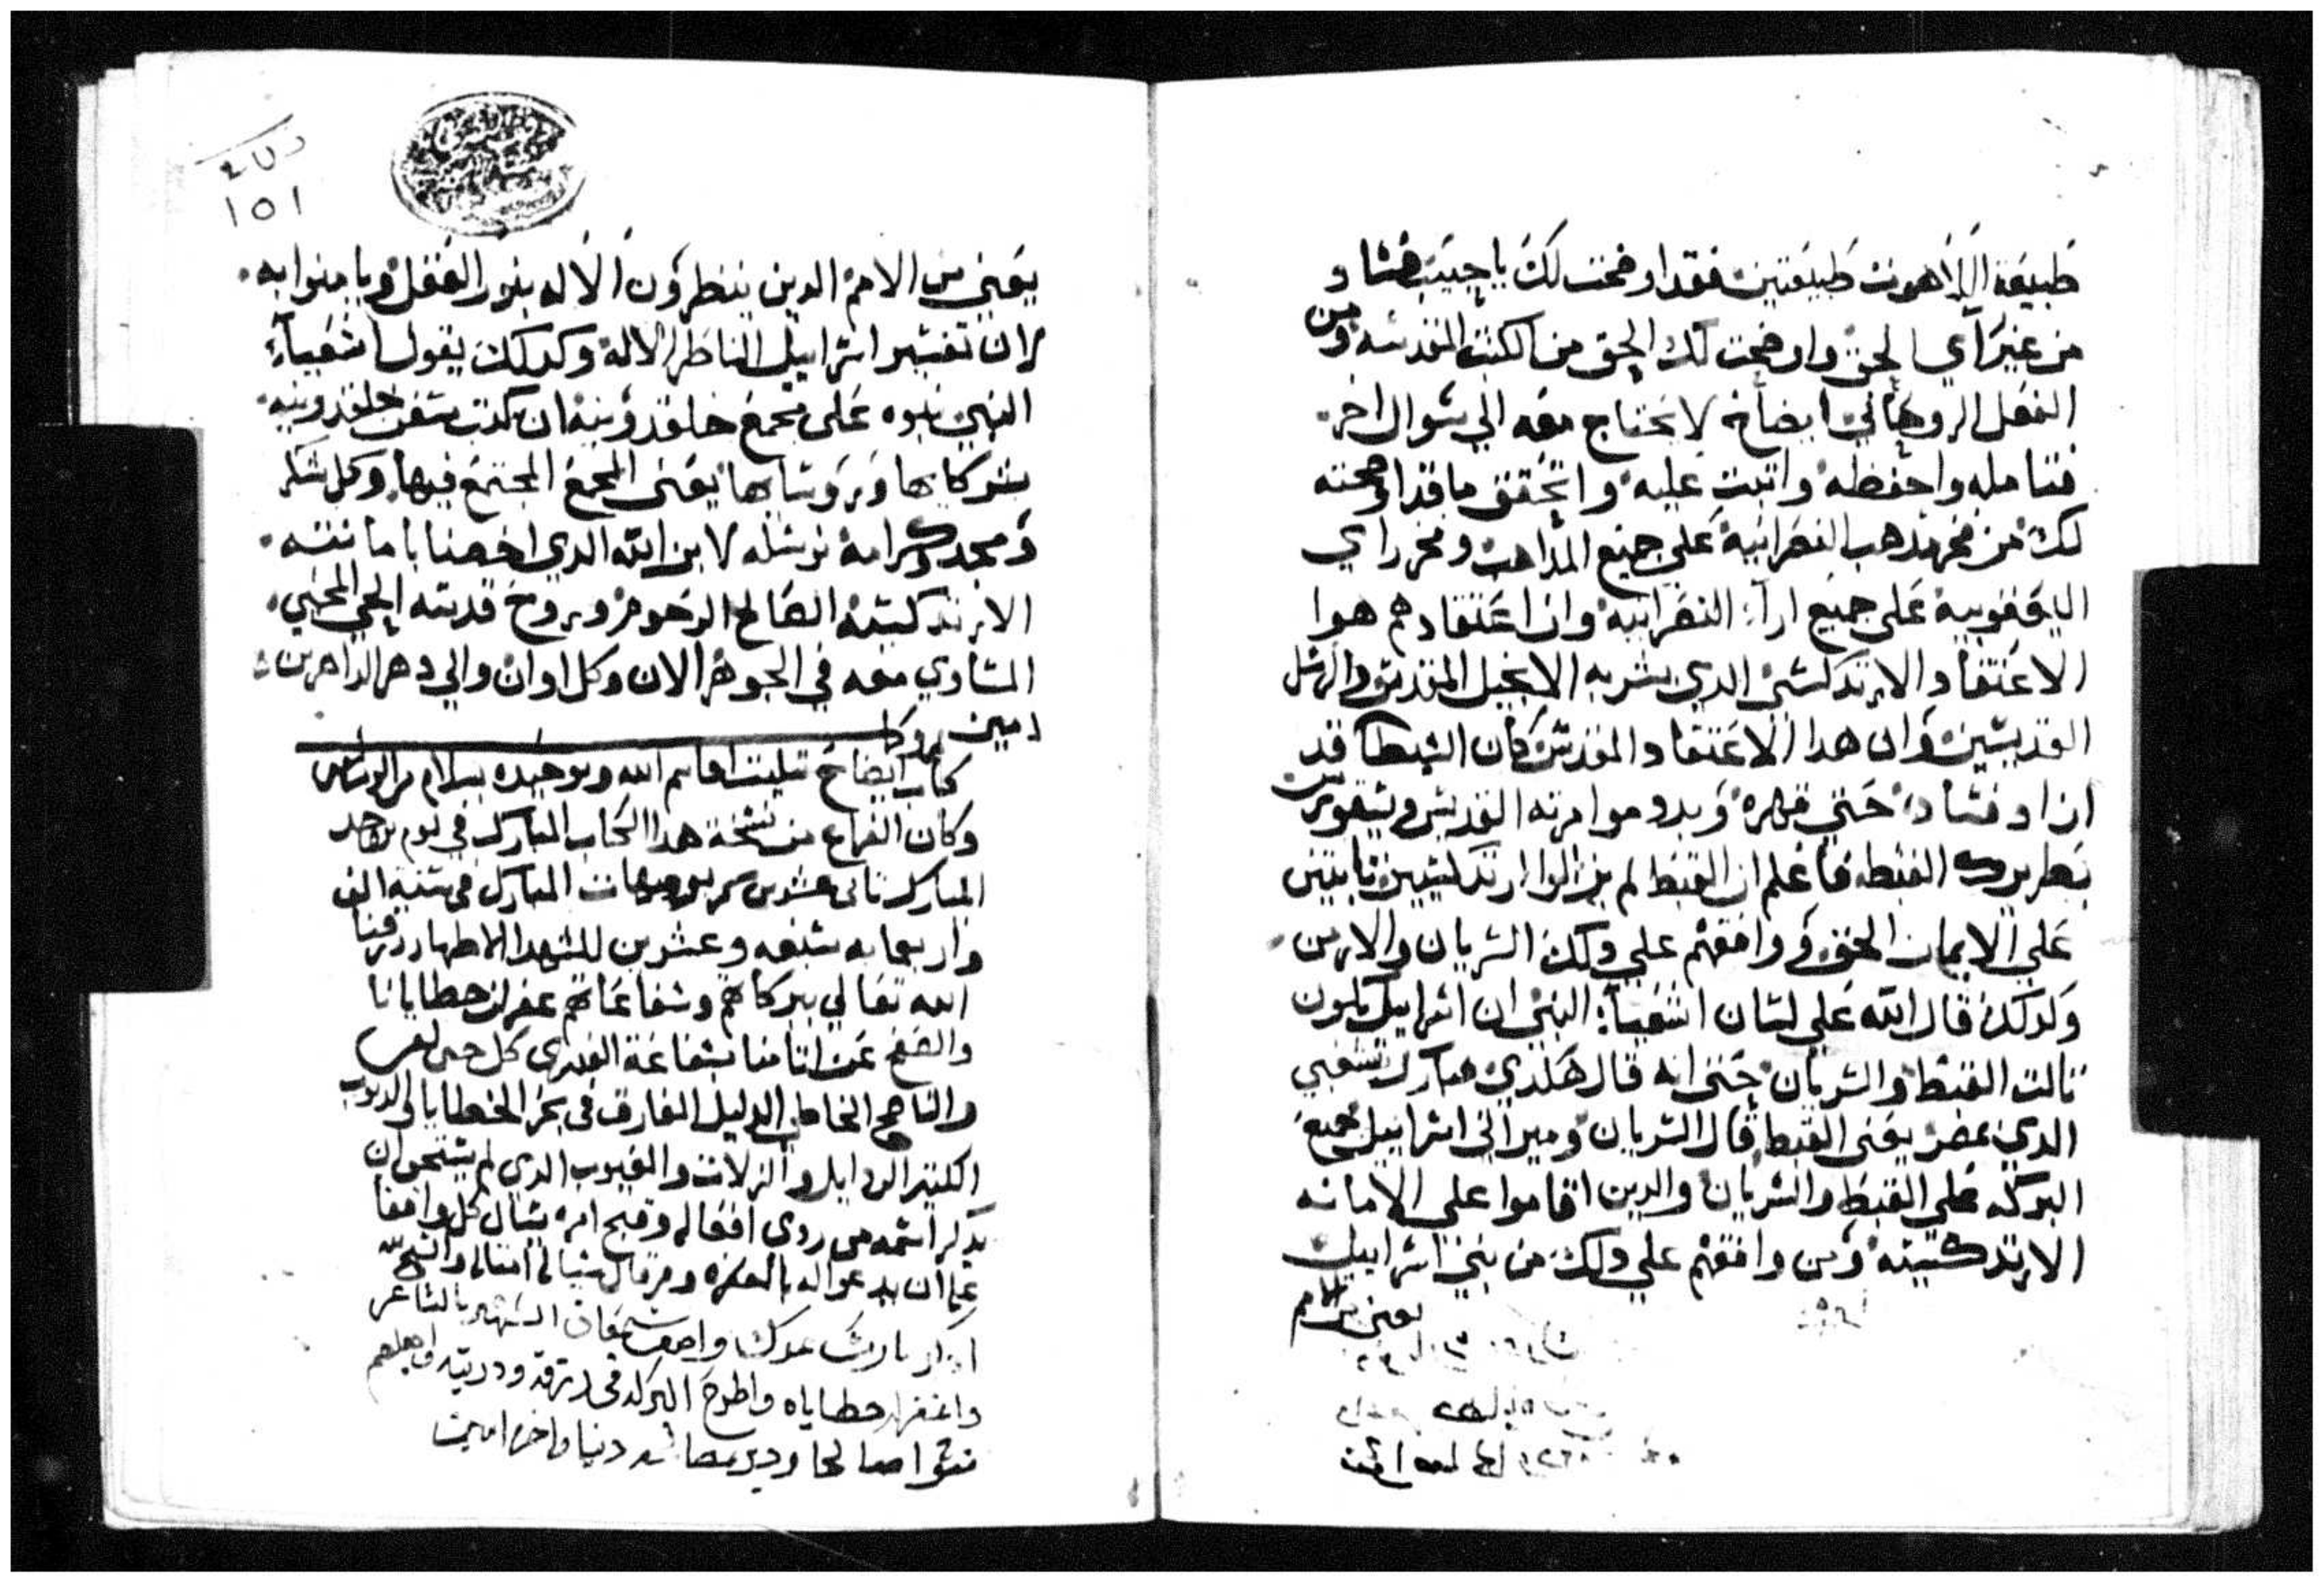 طبيعة اللاهوت طبيعتين فقد اوضحت لك يا حبيب فساد
من غير راي الحق واوضحت لك الحق من الكتب المقدسه ومن
العقل الروحاني ايضاح لا يحتاج معه الي سوال اخر
فتامله واحفظه واتبت عليه واتحقق ما قد اوضحته
لك من فخر مدهب النصرانية على جميع المداهب وفخر راي
اليعقوبية على جميع ارآء النصرانية وان اعتقادهم هوا
الاعتقاد الارتدكسي الدي بشر به الانجيل المقدس والرسل
القديسين وان هدا الاعتقاد المقدس كان الشيطان قد
اراد فساده حتي قهره وبدد موامرته القديس ديسقورس
بطريرك القبطه فاعلم ان القبط لم يزالوا ارتدكسيين تابتين
على الايمان الحق ووافقهم علي دلك السريان والارمن
وكدلك قال الله علي لسان اشعيآء النبي ان اسراييل يكون
تالت القبط والسريان حتى انه قال هكدي مبارك شعبي
الدي بمصر يعني القبط قال السريان وميراتي اسراييل فجميع
البركه على القبط والسريان والدين اقاموا علي الامانه
الارتدكسية ومن وافقهم علي دلك من بني اسراييل
يعني من الامم
١٥١
يعني من الامم الدين ينظرون الاله بنور العقل ويامنوا به
لان تفسير اسراييل الناظر الاله وكدلك يقول اشعيآء
النبي نبوه على مجمع خلقدونية ان كدب سفن خلقدونيه
شركايها وروسايها يعني المجمع المجتمع فيها وكل شكر
ومجد وكرامة نرسله لابن الله الدي اخصنا بامانته
الارتدكسية الصالح الرحوم وبروح قدسه الحي المحيي
المساوي معه في الجوهر الان وكل اوان والي دهر الداهرين
امين
كتاب ايضاح تتليت اقانيم الله وتوحيده بسلام من الرب امين
وكان الفراغ من نسخة هدا الكتاب المبارك في يوم الاحد
المبارك تاني عشرين المبارك في سنة الف
واربعمايه سبعه وعشرين للشهدا الاطهار رزقنا
الله تعالي ببركاتهم وشفاعاتهم غفران خطايانا
والصفح عن اتامنا بشفاعة العدرى كل حين
والناسخ الخاطي الدليل الغارق في بحر الخطايا والدنوب
الكتير الردايل والزلات والعيوب الدي لم يستحق ان
يدكر اسمه من ردي افعاله وقبح امره يسال كل واقفا
عليها ان يدعوا له بالمغفره ومن قال شيا له امتاله والمسيح
ادكر يا رب عبدك واصف سمعان الشهير بالشاعر
واغفر له خطاياه واطرح البركه في رزقه ودريته واجعلهم